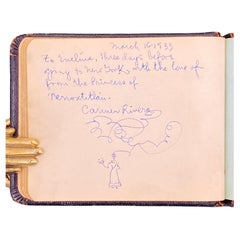 March 16 1933
To Emelina, three days before
going to New York with the love of
from the Princess of
Tenoxtitlán.
Carmen Rivera